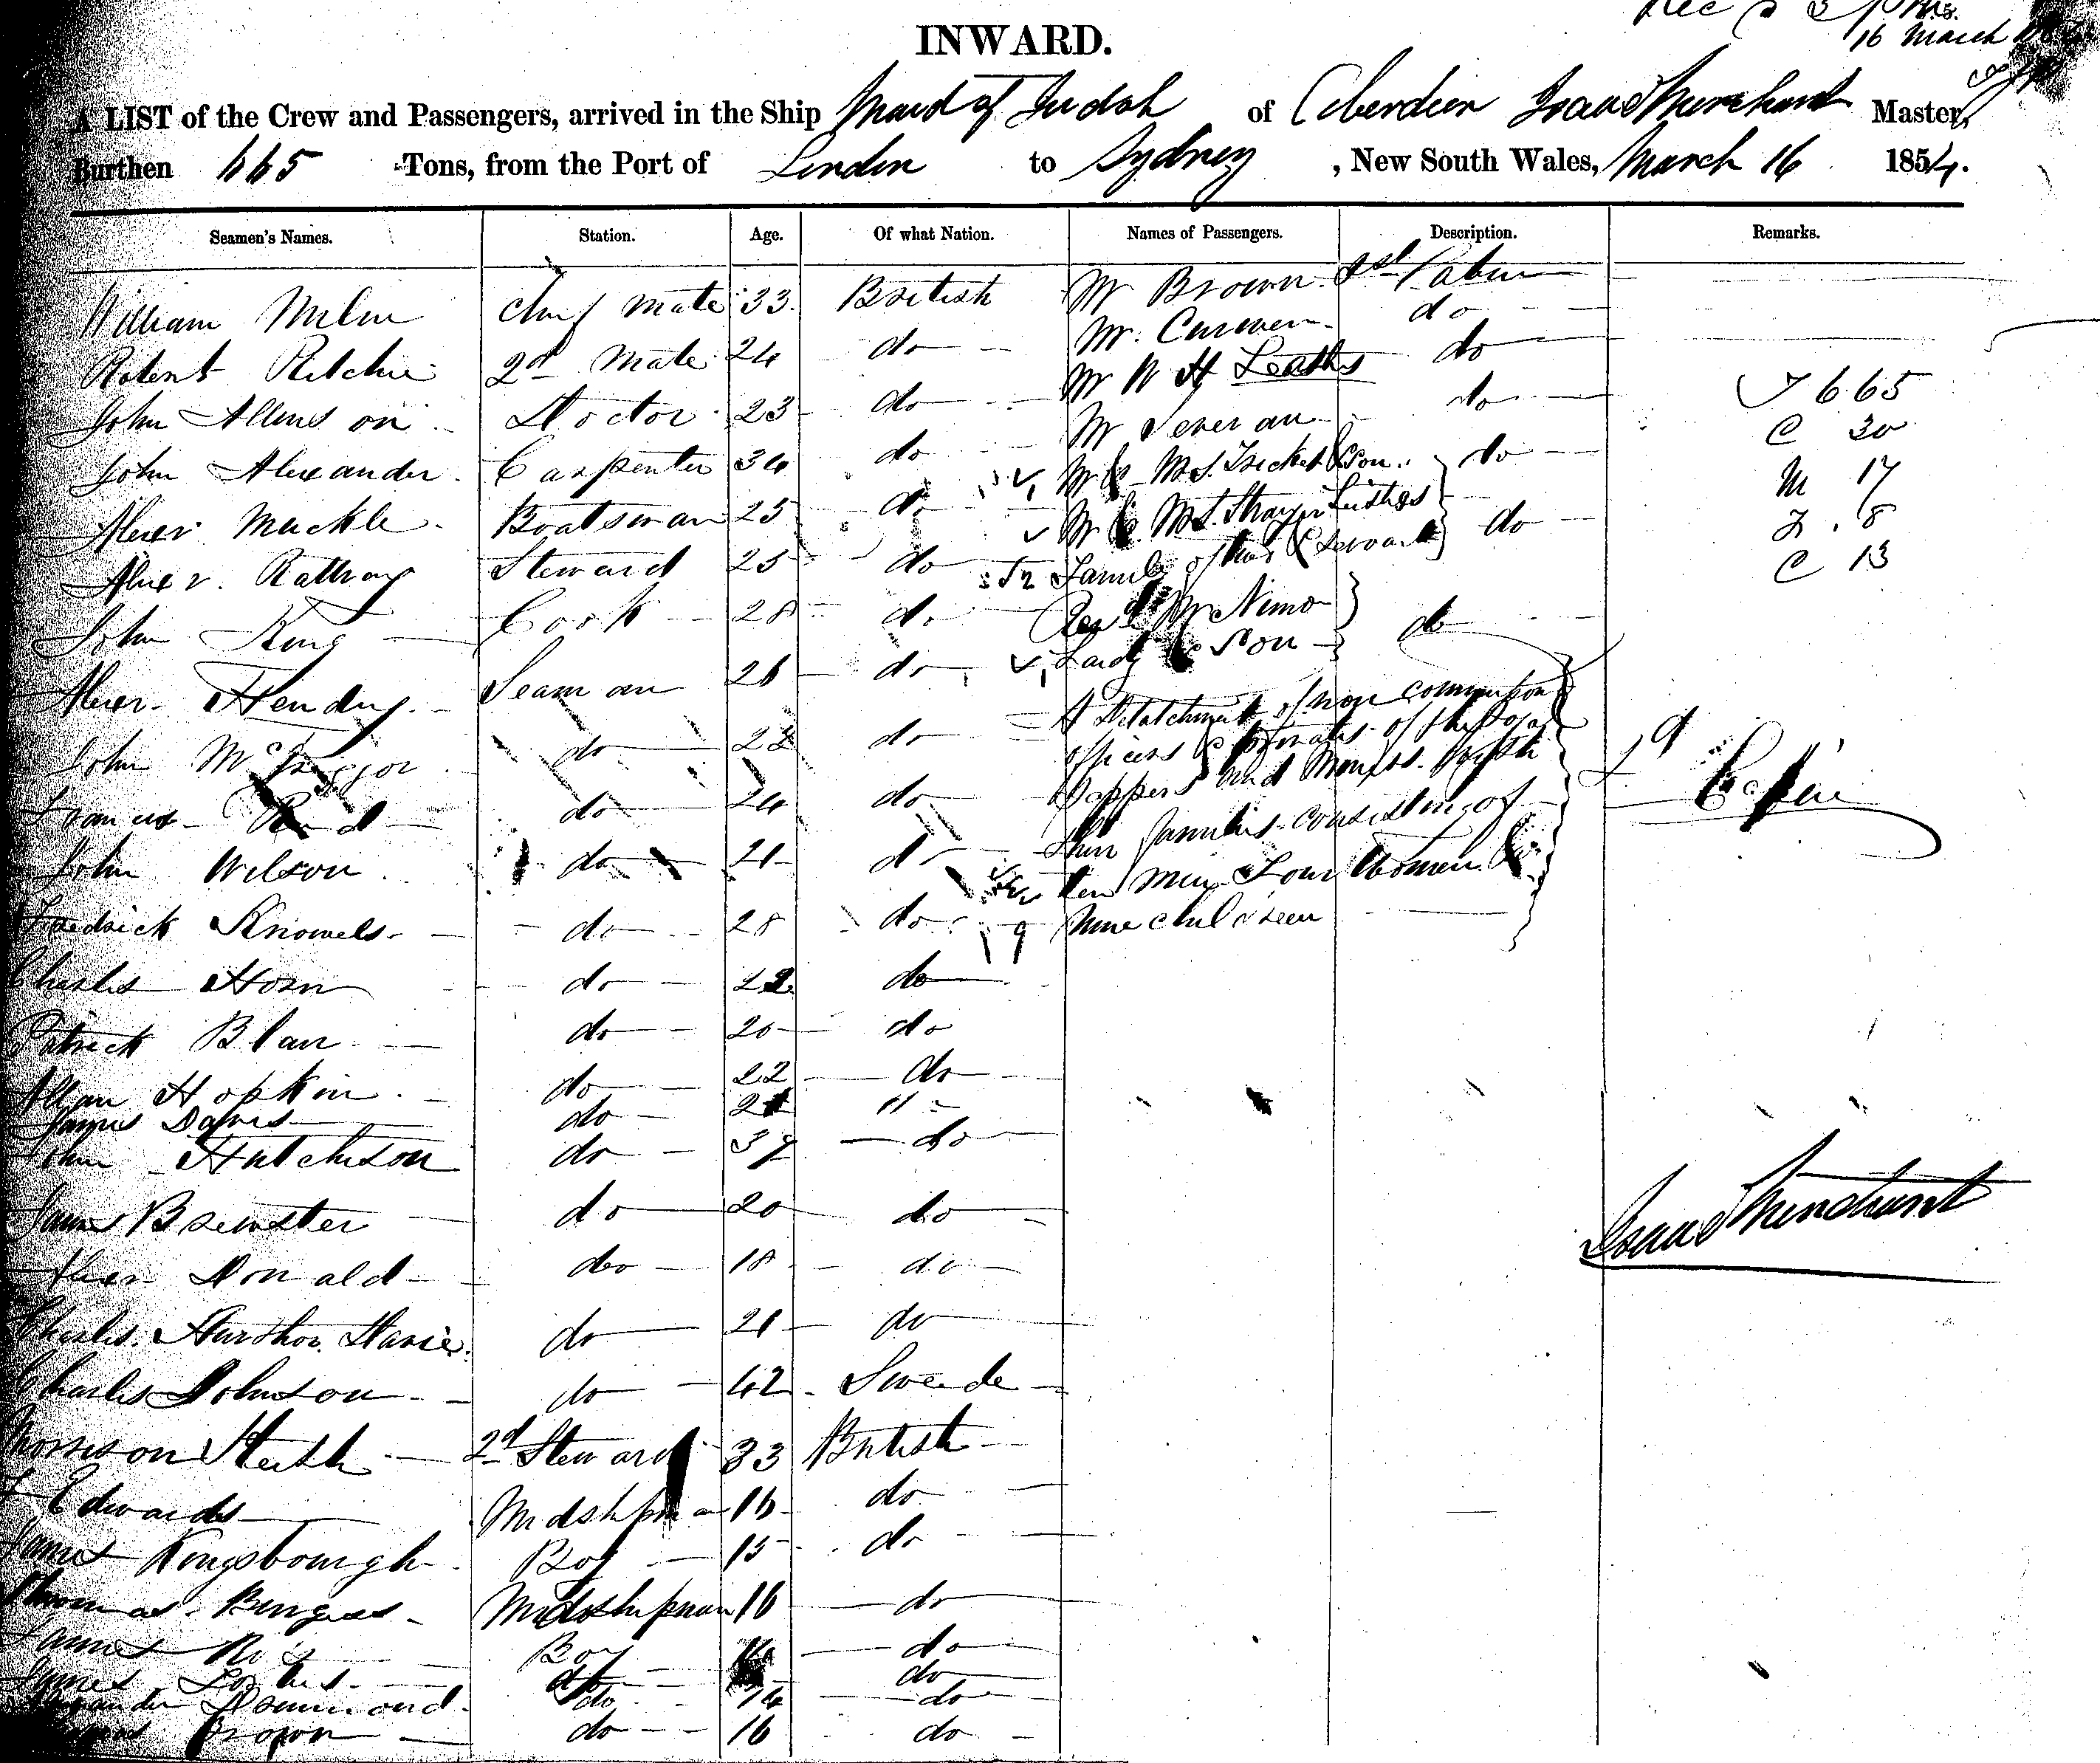 INWARD.
16 March
A LIST of the Crew and Passengers, arrived in the Ship Maid of Judah of Aberdeen Isaac Merchant Master,
Burthen 665 Tons, from the Port of London to Sydney, New South Wales, March 16 1854.
Seamen's Names. Station. Age. Of what Nation. Names of Passengers. Description. Remarks.
William Milne Chief Mate 33 British Mr Brown 1st Cabin
Robert Ritchie 2d Mate 24 do Mr. Curwen do
John Allinson Doctor 23 do Mr W H Leaths do
T 665
John Alexander Carpenter 34 do Mr Severan do
C 30
Alexr Muckle Boatswan 25 do Mr & Mrs Tricket & Son do
M 17
Alexr. Rattray Steward 25 do Mr & Mrs. do
F. 8
Family of two & Servant
C 13
John King Cook 28 do Revd Mr Nimo do
Alexr Hendry Seaman 26 do Lady & Son
John McGreggor do 22 do A Detatchment of non commission
officers & privates of the Royal
Francis do 24 do Sappers and Miners with
John Wilson do 21 do their families consisting of
ten men Four Women &
Fredrick Knowels do 28 do 9 Nine children
Charles Horn do 22 do
Patrick Blan do 20 do
Allan Hopkin do 22 do
James Davis do 21 "
John Hutchison do 37 do
James Brewster do 20 do
Isaac Merchant
Alexr Donald do 18 do
Charles do 21 do
Charles Johnson do 42 Swede
Morrison 2d Steward 33 British
Edwards Midshpman 16 do
James Kingsbourgh Boy 15 do
Thomas Burgess Midshipman 16 do
James Boy do
James Forbes do do
Alexander Drummond do 14 do
Brown do 16 do